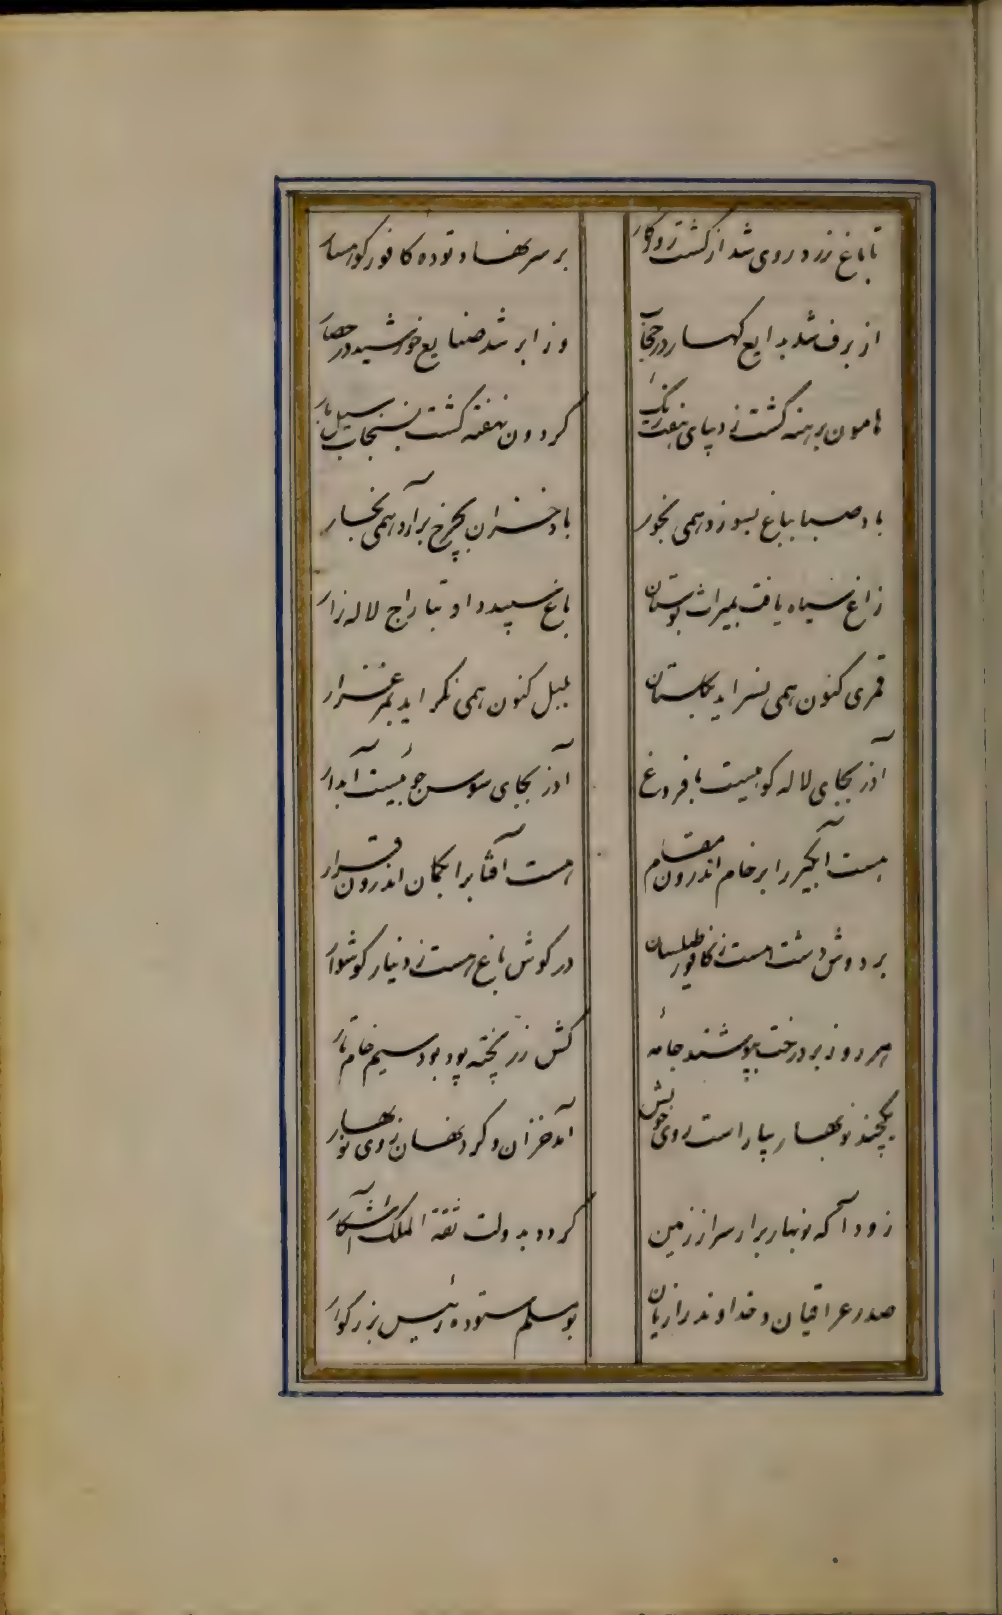 تا باغ زرد روی شد از گشت روزگار
بر سر نهاد توده کافور کوهسار
از برف شد بدایع کهسار در حجاب
وز ابر شد صنایع خورشید در حصار
هامون برهنه گشت ز دیبای هفت رنگ
گردون نهفته گشت بسنجاب سیل بار
باد صبا بباغ نسوزد همی بخور
باد خزان بچرخ برآرد همی بخار
زاغ سیاه یافت بمیراث بوستان
باغ سپید داد بتاراج لاله زار
قمری کنون همی نسراید بگلستان
بلبل کنون همی نگراید بمرغزار
آذر بجای لاله کوهیست با فروغ
آذر بجای سوسن جوئیست آبدار
هست آبگیر را بر خام اندرون مقام
هست آفتاب را بکمان اندرون قرار
بر دوش دشت هست ز کافور طیلسان
در گوش باغ هست ز دینار گوشوار
هر روز بر درخت بپوشند جامهٔ
کش زر پخته پود بود سیم خام تار
یکچند نوبهار بیاراست روی خویش
آمد خزان و کرد نهان روی نوبهار
زود آ که نوبهار برآرد سر از زمین
گردد بدولت ثقة الملک آشکار
صدر عراقیان و خداوند رازیان
بوسلم ستوده رئیس بزرگوار